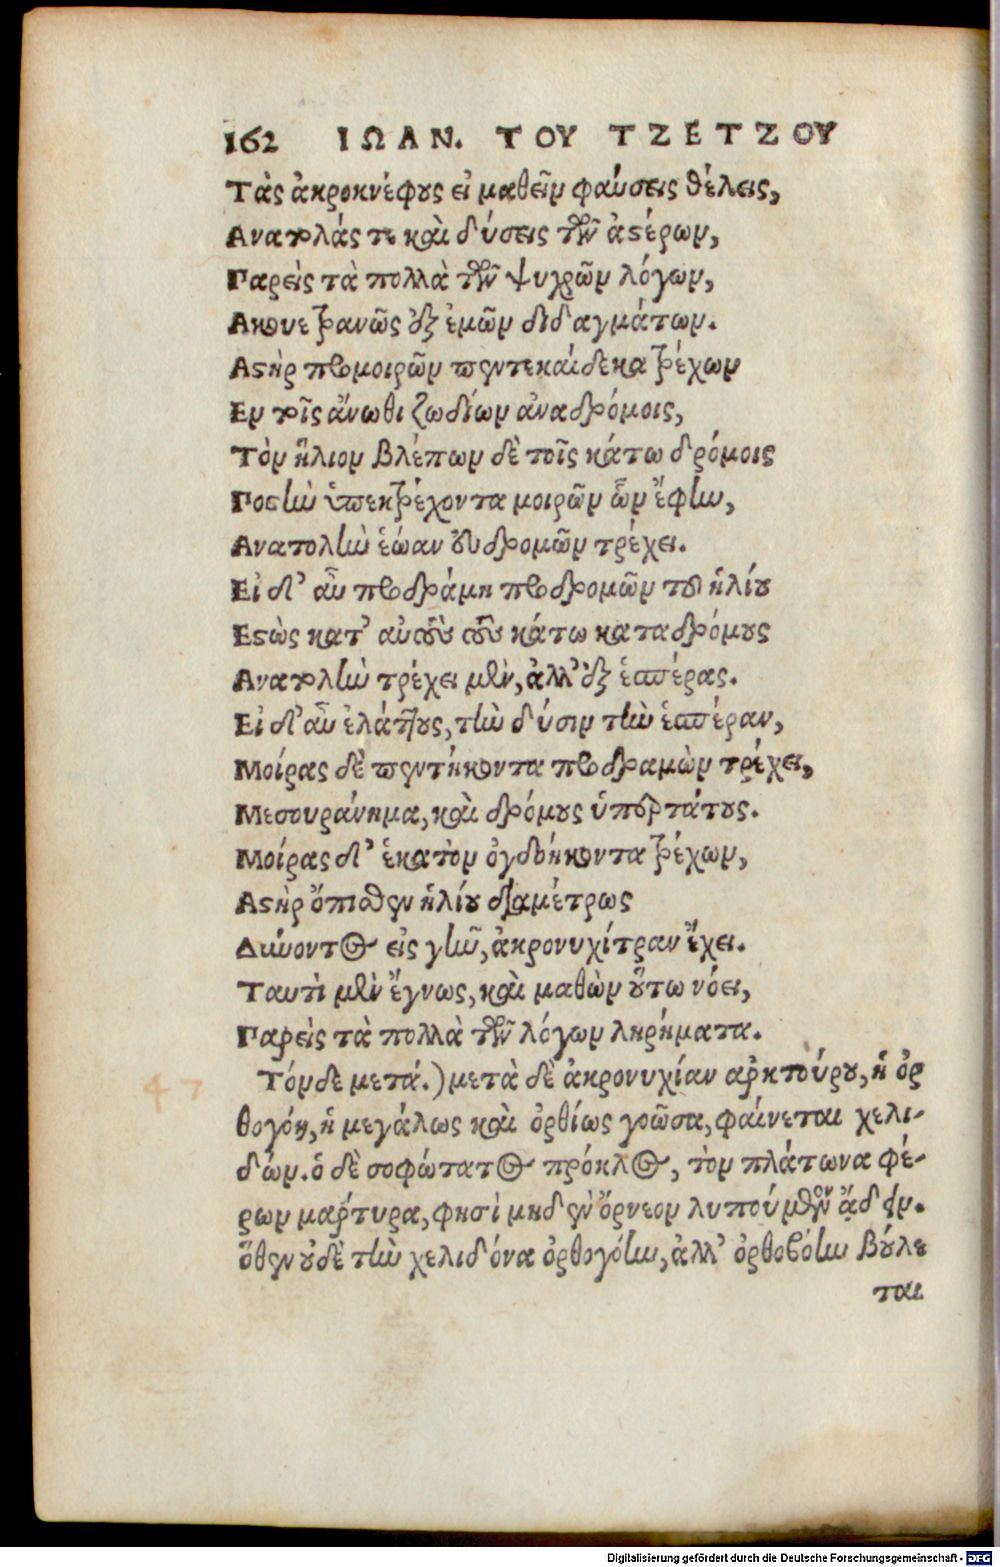 162 ΙΩΑΝ. ΤΟΥ ΤΖΕΤΖΟΥ
Τὰς ἀκροκνέφους εἰ μαθεῖν φαύσεις θέλεις,
Ανατολάς τε καὶ δύσεις τῶν ἀστέρων,
Παρεὶς τὰ πολλὰ τῶν ψυχρῶν λόγων,
Ακουε τρανῶς ἐξ ἐμῶν διδαγμάτων.
Αστὴρ προμοιρῶν πεντεκαίδεκα τρέχων
Εν τοῖς ἄνωθι ζωδίων ἀναδρόμοις,
Τὸν ἥλιον βλέπων δὲ τοῖς κάτω δρόμοις
Ποστὴν ὑπεκτρέχοντα μοιρῶν ὧν ἔφην,
Ανατολὴν ἑώαν εὐδρομῶν τρέχει.
Εἰ δ' αὖ προδράμη προδρομῶν τοῦ ἡλίου
Εστὼς κατ' αὐτοὺς τοὺς κάτω καταδρόμους
Ανατολὴν τρέχει μὲν, ἀλλ' ἐξ ἑσπέρας.
Εἰ δ' αὖ ἐλάττους, τὴν δύσιν τὴν ἑσπέραν,
Μοίρας δὲ πεντήκοντα προδραμὼν τρέχει,
Μεσουράνημα, καὶ δρόμους ὑπερτάτους.
Μοίρας δ' ἑκατὸν ὀγδοήκοντα τρέχων,
Αστὴρ ὄπισθεν ἡλίου διαμέτρως
Δύνοντος εἰς γῆν, ἀκρονυχίτραν ἔχει.
Ταυτὶ μὲν ἔγνως, καὶ μαθὼν οὕτω νόει,
Παρεὶς τὰ πολλὰ τῶν λόγων ληρήματα.
Τόνδε μετά.) μετὰ δὲ ἀκρονυχίαν ἀρκτούρου, ἡ ὀρ
θογόη, ἡ μεγάλως καὶ ὀρθίως γοῶσα, φαίνεται χελι-
δών. ὁ δὲ σοφώτατος πρόκλος, τὸν πλάτωνα φέ-
ρων μάρτυρα, φησὶ μηδὲν ὄρνεον λυπούμενον ᾄδειν.
ὅθεν οὐδὲ τὴν χελιδόνα ὀρθογόην, ἀλλ' ὀρθοβόην βούλε
ται
47
Digitalisierung gefördert durch die Deutsche Forschungsgemeinschaft - DFG